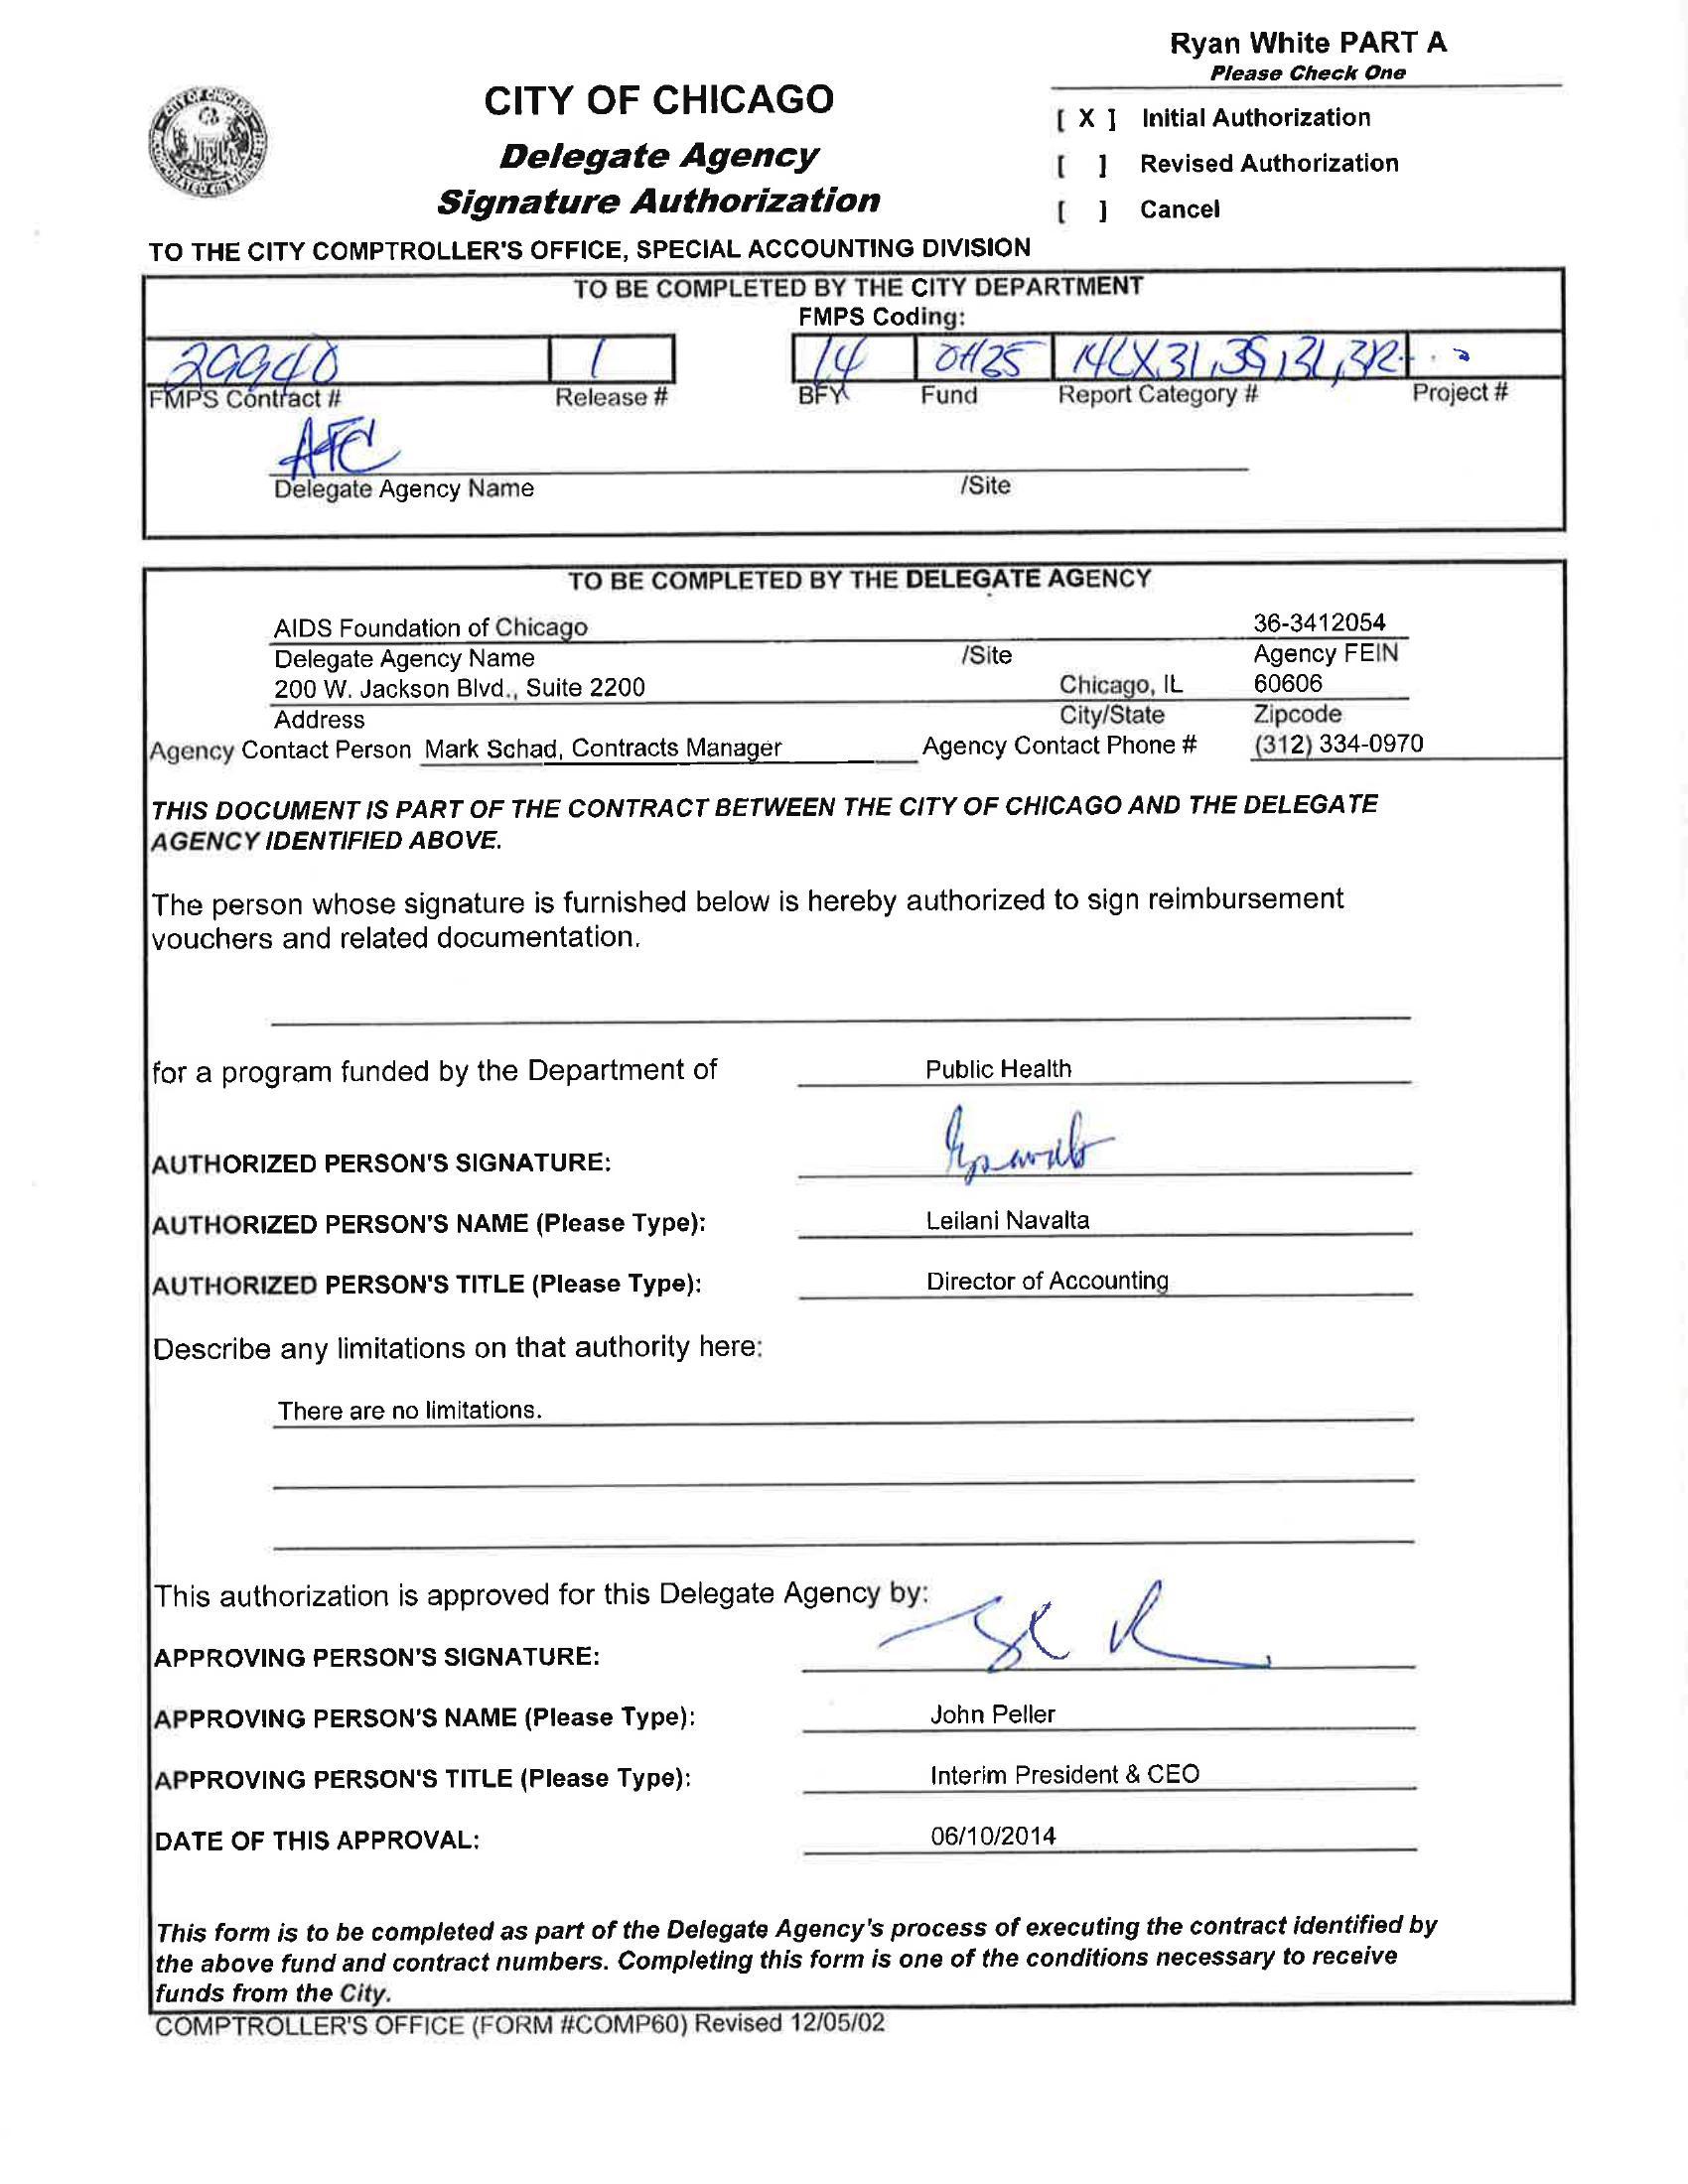 Ryan White PART A
Please Check One
CITY OF CHICAGO
[ X ] Initial Authorization
Delegate Agency
[ ] Revised Authorization
Signature Authorization
[ ] Cancel
TO THE CITY COMPTROLLER'S OFFICE, SPECIAL ACCOUNTING DIVISION
TO BE COMPLETED BY THE CITY DEPARTMENT
FMPS Coding:
29940 1 14 0H25
FMPS Contract # Release # BFY Fund Report Category # Project #
AFC
Delegate Agency Name /Site
TO BE COMPLETED BY THE DELEGATE AGENCY
AIDS Foundation of Chicago 36-3412054
Delegate Agency Name /Site Agency FEIN
200 W. Jackson Blvd., Suite 2200 Chicago, IL 60606
Address City/State Zipcode
Agency Contact Person Mark Schad, Contracts Manager Agency Contact Phone # (312) 334-0970
THIS DOCUMENT IS PART OF THE CONTRACT BETWEEN THE CITY OF CHICAGO AND THE DELEGATE
AGENCY IDENTIFIED ABOVE.
The person whose signature is furnished below is hereby authorized to sign reimbursement
vouchers and related documentation.
for a program funded by the Department of Public Health
AUTHORIZED PERSON'S SIGNATURE:
AUTHORIZED PERSON'S NAME (Please Type): Leilani Navalta
AUTHORIZED PERSON'S TITLE (Please Type): Director of Accounting
Describe any limitations on that authority here:
There are no limitations.
This authorization is approved for this Delegate Agency by:
APPROVING PERSON'S SIGNATURE:
APPROVING PERSON'S NAME (Please Type): John Peller
APPROVING PERSON'S TITLE (Please Type): Interim President & CEO
DATE OF THIS APPROVAL: 06/10/2014
This form is to be completed as part of the Delegate Agency's process of executing the contract identified by
the above fund and contract numbers. Completing this form is one of the conditions necessary to receive
funds from the City.
COMPTROLLER'S OFFICE (FORM #COMP60) Revised 12/05/02